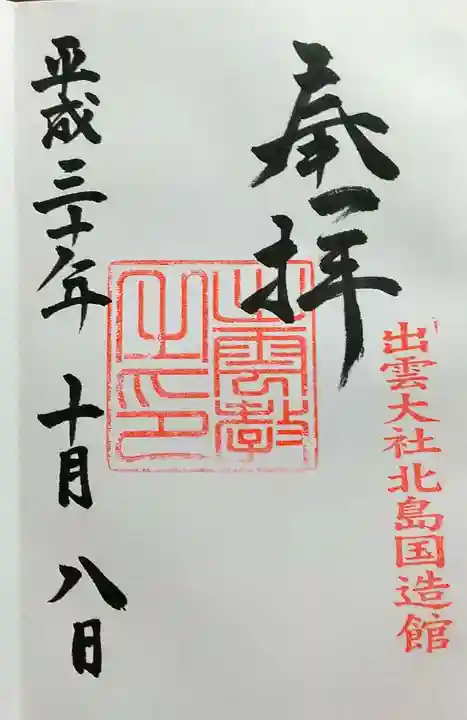 出雲大社北島国造館
奉拝
出雲教
之印
平成三十年 十月 八日